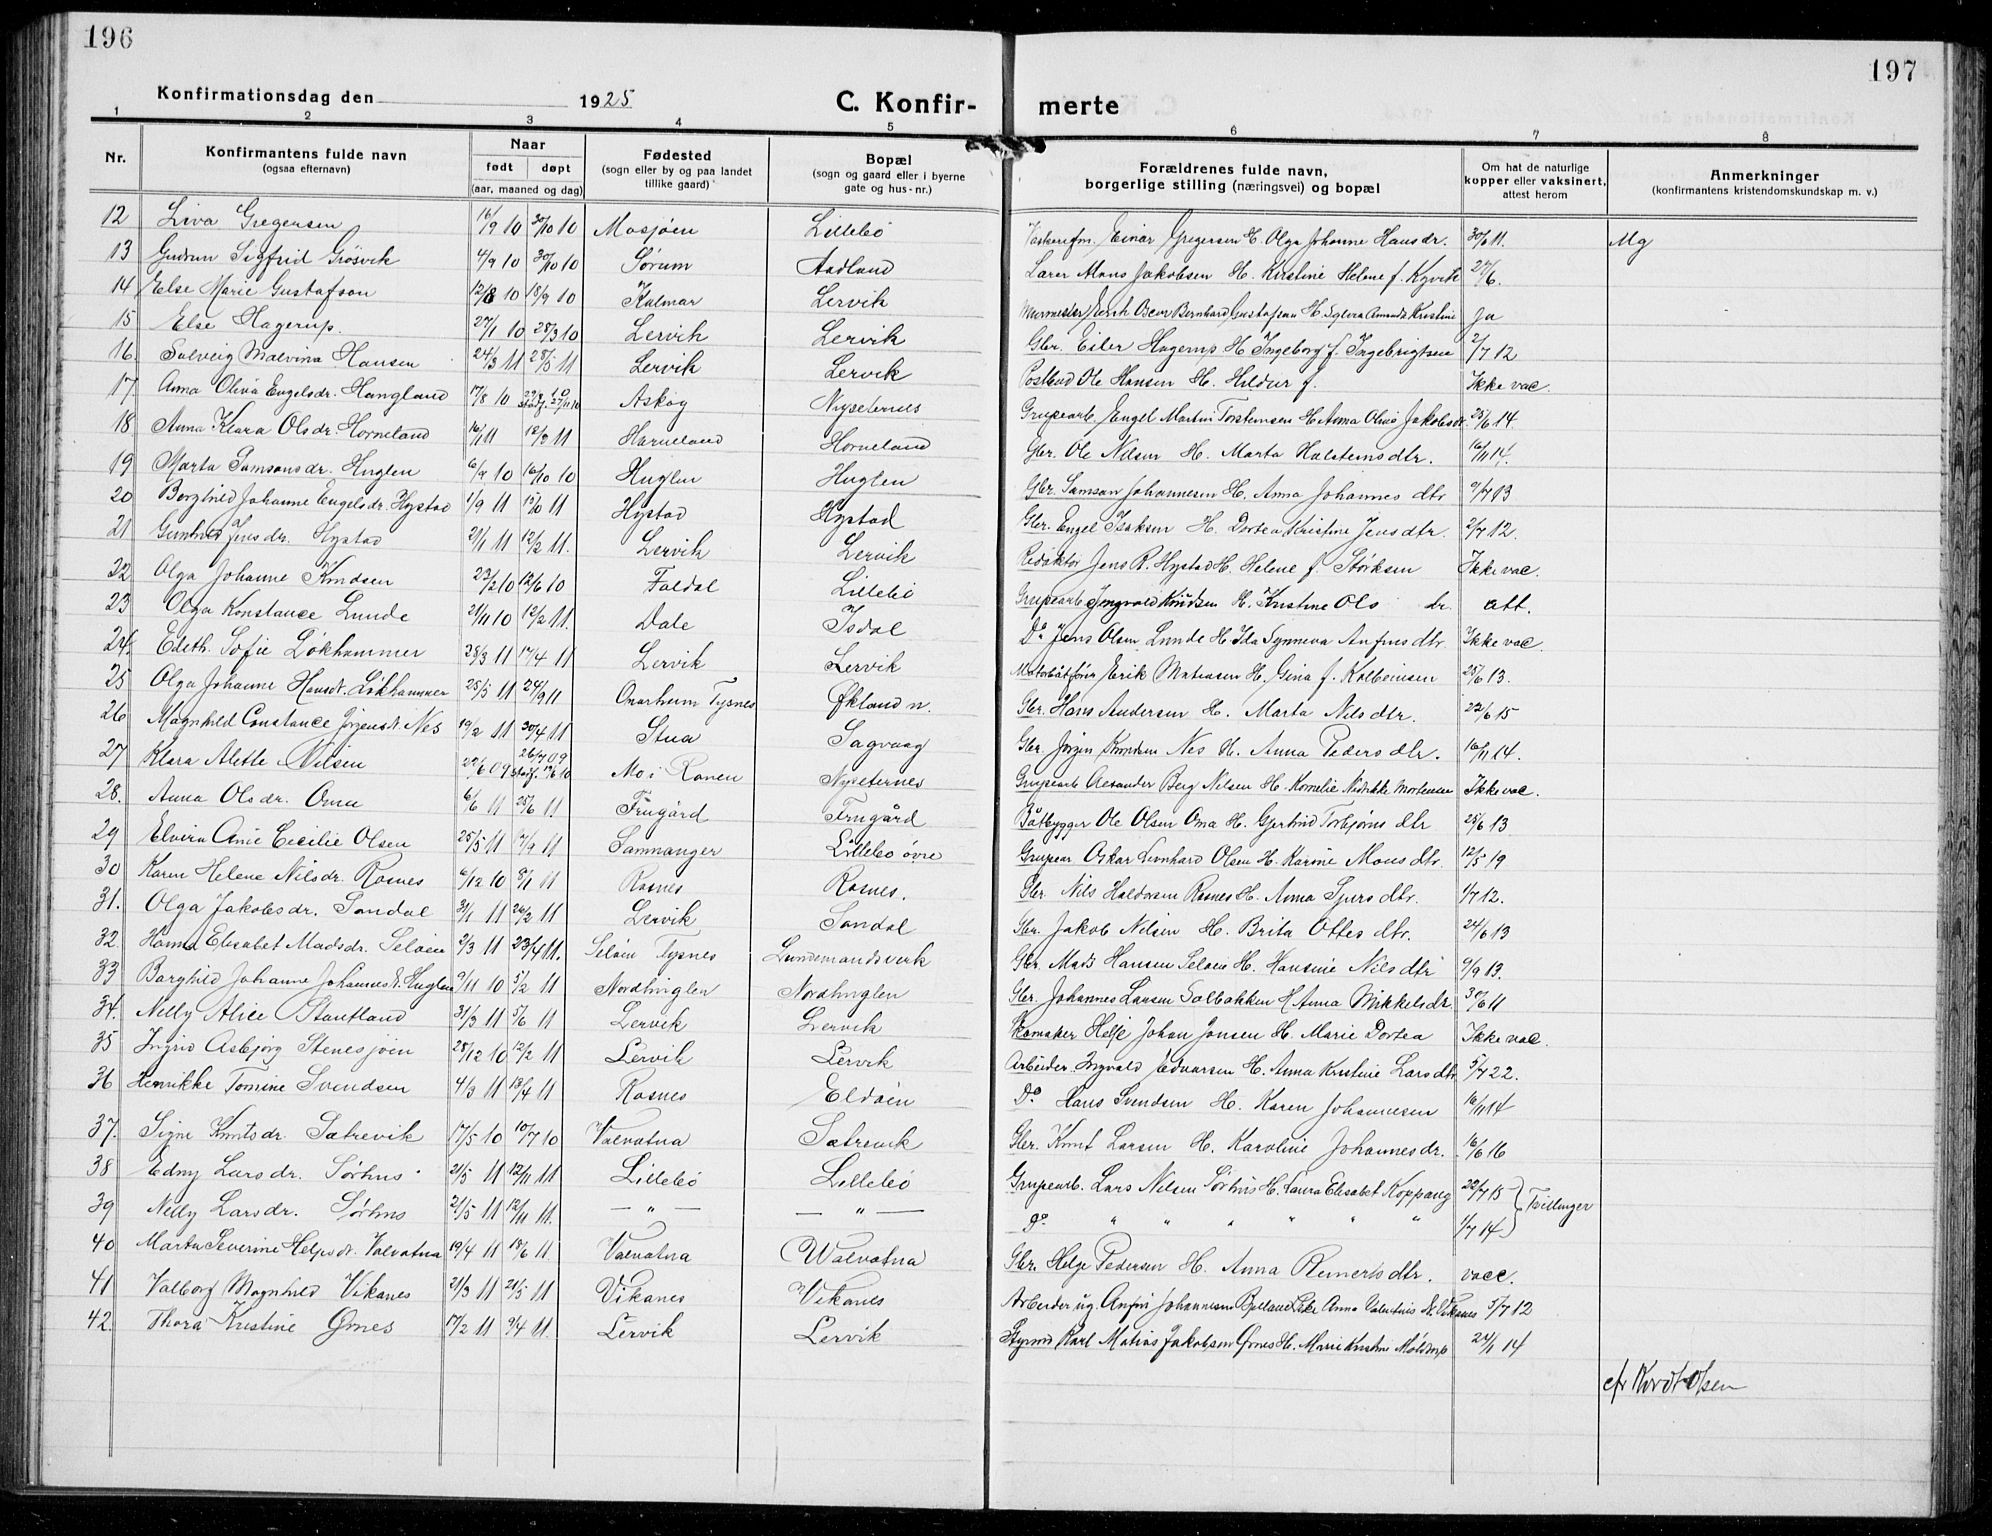 196
197
Konfirmationsdag den 1925
C. Konfir- merte
1 2 3 4 5 6 7 8
Nr.
Konfirmantens fulde navn
(ogsaa efternavn)
Naar
født døpt
(aar, maaned og dag)
Fødested
(sogn eller by og paa landet
tillike gaard)
Bopæl
(sogn og gaard eller i byerne
gate og hus-nr.)
Forældrenes fulde navn,
borgerlige stilling (næringsvei) og bopæl
Om hat de naturlige
kopper eller vaksinert,
attest herom
Anmerkninger
(konfirmantens kristendomskundskap m. v.)
12 Liva Gregersen 16/9 10 30/10 10 Mosjøen Lillebö Einar Gregersen H. Olga Johanne Hansdr. 30/6 11. Mg
13 Gudrun Sigfrid Grösvik 4/9 10 30/10 10 Sørum Aadland Lärer Mons Jakobsen H. Kristine Helene f. Kyvik
14 Else Marie Gustafson 12/8 10 18/9 10 Kalmar Lervik Murmester Oscar Bernhard Gustafson H. Sylvia Amanda Kristine Ja
15 Else Hagerup. 27/1 10 28/3 10 Lervik Lervik Gbr. Eiler Hagerup H. Ingeborg f. Ingebrigtsen 2/7 12
16 Solveig Malvina Hansen 24/3 11 28/5 11 Lervik Lervik Postbud Ole Hansen H. Hildur f. Ikke vac.
17 Anna Oliva Engelsdr. Hangland 17/8 10 Askøy Nyseternes Grupearb. Engel Martin Torstensen H. Anna Olivo Jakobsdr 25/6 14.
18 Anna Klara Olsdr. Horneland 16/1 11 12/3 11 Horneland Horneland Gbr. Ole Nilsen H. Marta Halstensdtr. 16/11 14.
19 Marta Samsonsdr. Huglen 6/9 10 16/10 10 Huglen Huglen Gbr. Samson Johannesen H. Anna Johannesdtr 9/7 13
20 Borghild Johanne Engelsdr. Hystad 1/9 11 15/10 11 Hystad Hystad Gbr. Engel Isaksen H. Dortea Kristine Jensdtr. 2/7 12.
21 Gunhild Jensdr. Hystad 21/1 11 12/2 11. Lervik Lervik Redaktör Jens R. Hystad H. Helene f. Störksen Ikke vac.
22 Olga Johanne Knudsen 22/2 10 12/6 10 Foldal Lillebö Grupearb. Ingvald Knudsen H. Kristine Ols dr. att.
23 Olga Konstance Lunde 21/11 10 12/2 11. Dale Isdal Do Jens Olsen Lunde H. Ida Synneva Anfinsdtr Ikke vac.
24. Edith Sofie Løkhammer 28/3 11 17/4 11 Lervik Lervik Motorbåtförer Erik Matiasen H. Gina f. Kolbeinsen 25/6 13.
25 Olga Johanne Hansdr. Løkhammer 25/5 11 24/9 11 Onarheim Tysnes Økland n. Gbr. Hans Andersen H. Marta Nilsdtr. 22/6 15
26 Magnhild Constance Jørgensdr. Nes 19/2 11 30/4 11 Stua Sagvaag Gbr. Jørgen Knudsen Nes H. Anna Pedersdtr. 16/11 14.
27 Klara Alette Nilsen 29/6 09 26/7 09 Mo i Ranen Nyseternes Grupearb. Alexander Berg Nilsen H. Kornelie Nidrikke Mortensen Ikke vac.
28. Anna Olsdr. Oma 6/6 11 25/6 11. Frugård Frugård Båtbygger Ole Olsen Oma H. Gjertrud Torbjørnsdtr 25/6 13
29 Elvira Anie Cecilie Olsen 25/5 11 17/9 11 Samnanger Lillebö övre Grupear. Oskar Leonhard Olsen H. Karine Monsdtr. 12/5 19
30 Karen Helene Nilsdr. Rosnes 6/12 10 8/1 11 Rosnes Rosnes. Gbr. Nils Haldorsen Rosnes H. Anna Sjursdtr. 1/7 12.
31. Olga Jakobsdr. Sandal 31/1 11 26/2 11 Lervik Sandal Gbr. Jakob Nilsen H. Brita Ottesdtr. 24/6 13
32. Hanna Elisabet Madsdr. Seløen 2/3 11 23/4 11. Seløen Tysnes Lundemandsverk Gbr. Mads Hansen Seløen H. Hansine Nilsdtr 9/9 13.
33 Borghild Johanne Johannesdr. Huglen 9/11 10 5/2 11 Nordhuglen Nordhuglen Gbr. Johannes Larsen Solbakken H. Anna Mikkelsdr 30/6 11
34. Nelly Alice Stautland 31/3 11 5/6 11 Lervik Lervik Skomaker Helje Johan Jonsen H. Marie Dortea Ikke vac.
35 Ingrid Asbjörg Stenesjøen 28/12 10 12/2 11 Lervik Lervik Arbeider. Ingvald Edvarsen H. Anna Kristine Larsdtr 5/7 22.
36 Henrikke Tomine Svendsen 4/3 11 13/4 11 Rosnes Eldøen Do Hans Svendsen H. Karen Johannesen 16/11 14
37. Signe Knutsdr. Satrevik 17/5 10 10/7 10 Valvatna Satrevik Gbr. Knut Larsen H. Karoline Johannesdr. 16/6 16
38 Edny Larsdr. Sørhus 21/5 11 12/11 11 Lillebö Lillebö Grupearb. Lars Nilsen Sörhus H. Laura Elisabet Koppang 22/7 15 Tvillinger
39 Nelly Larsdr. Sørhus 21/5 11 12/11 11. — " — — " — Do " " " " " " 1/7 14
40 Marta Severine Helgesdr. Valvatna 19/4 11 18/6 11. Valvatna Walvatna Gbr. Helge Pedersen H. Anna Reinertsdtr. vacc.
41 Valborg Magnhild Vikanes 21/3 11 21/5 11 Vikanes Vikanes Arbeider ug. Anfin Johannesen Pike Anna Valentine N. Vikanes 5/7 12
42. Thora Kristine Ornes 17/2 11 9/4 11. Lervik Lervik Styrmd Karl Matias Jakobsen Ornes H. Marie Kristine 24/1 14
Kordt Olsen